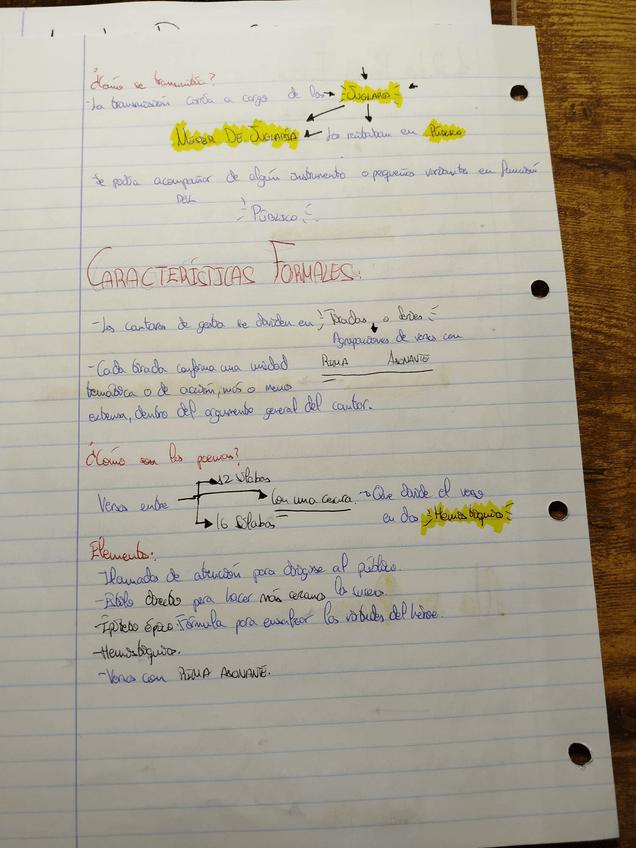 ¿Cómo se transmitía?
-La transmisión corría a cargo de los → JUGLARÍA
MESTER DE JUGLARÍA ← Los recitaban en PÚBLICO
Se podía acompañar de algún instrumento o pequeñas variantes en función
DEL
PÚBLICO
CARACTERÍSTICAS FORMALES:
-Los cantares de gesta se dividen en Tiradas o series
Agrupaciones de versos con
-Cada tirada conforma una unidad RIMA ASONANTE
temática o de acción, más o menos
extensa, dentro del argumento general del cantar.
¿Cómo son los poemas?
12 Sílabas
Versos entre → Con una cesura. → Que divide el verso
16 Sílabas en dos Hemistiquios
Elementos:
-Llamadas de atención para dirigirse al público.
-Estilo directo para hacer más cercano lo
-Épiteto épico: Fórmula para ensalzar las virtudes del héroe.
-Hemistiquios.
-Versos con RIMA ASONANTE.